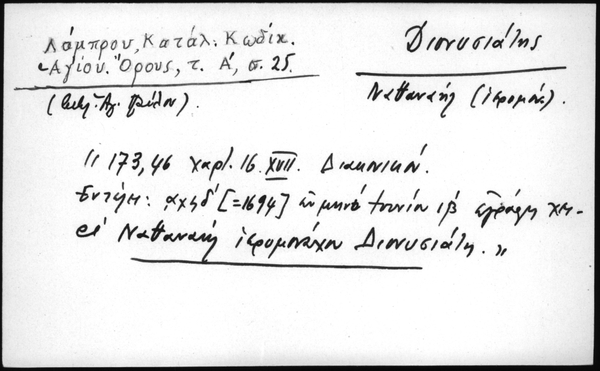 Λάμπρου, Κατάλ. Κωδίκ.
Ἁγίου Ὄρους, τ. Α΄, σ. 25.
Διονυσιάτης
Ναθαναὴλ (ἱερομόν.).
" 173,46 χαρτ. 16. XVII. Διακονικόν.
αχϟδ΄ [=1694] ἐν μηνὶ ἰουνίῳ ιβ ἐγράφη χει-
Ναθαναὴλ ἱερομονάχου Διονυσιάτη. "